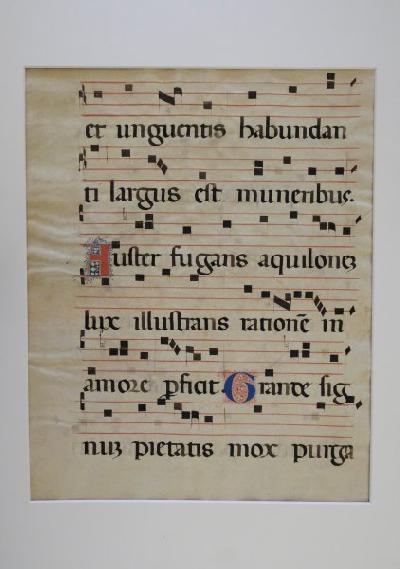 et unguentis habundan
ti largus est muneribus.
Auster fugans aquiloneꝫ
lux illustrans rationē in
amore ꝑficit Grante sig
nuꝫ pietatis mox purga